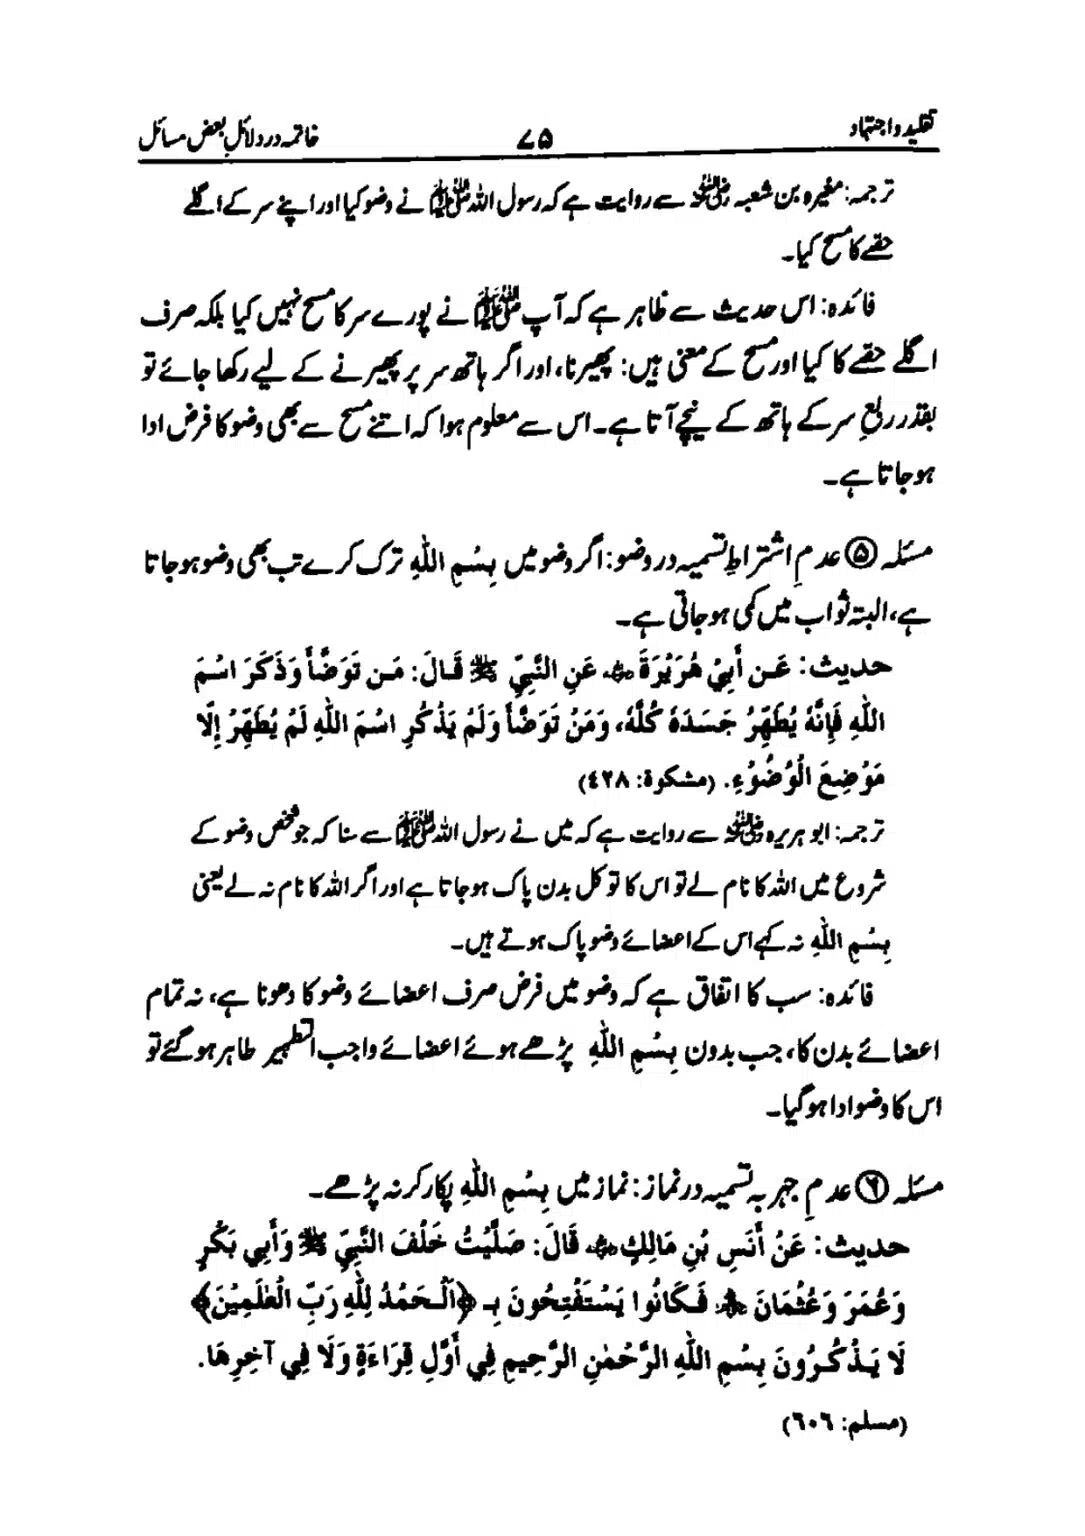 تقلید و اجتہاد ۷۵ خاتمہ در دلائلِ بعض مسائل
ترجمہ: مغیرہ بن شعبہ رضی اللہ عنہ سے روایت ہے کہ رسول اللہ ﷺ نے وضو کیا اور اپنے سر کے اگلے
حصّے کا مسح کیا۔
فائدہ: اس حدیث سے ظاہر ہے کہ آپ ﷺ نے پورے سر کا مسح نہیں کیا بلکہ صرف
اگلے حصّے کا کیا اور مسح کے معنی ہیں: پھیرنا، اور اگر ہاتھ سر پر پھیرنے کے لیے رکھا جائے تو
بقدر ربعِ سر کے ہاتھ کے نیچے آتا ہے۔ اس سے معلوم ہوا کہ اتنے مسح سے بھی وضو کا فرض ادا
ہوجاتا ہے۔
مسئلہ ۵ عدمِ اشتراطِ تسمیہ در وضو: اگر وضو میں بِسْمِ اللّٰہِ ترک کرے تب بھی وضو ہوجاتا
ہے، البتہ ثواب میں کمی ہوجاتی ہے۔
حدیث: عَـن أَبِيْ هُرَيْرَةَ رضی اللہ عنہ عَنِ النَّبِيِّ ﷺ قَـالَ: مَـن تَوَضَّأَ وَذَكَرَ اسْمَ
اللهِ فَإِنَّهُ يُطَهِّرُ جَسَدَهُ كُلَّهُ، وَمَنْ تَوَضَّأَ وَلَمْ يَذْكُرِ اسْمَ اللهِ لَمْ يُطَهِّرْ إِلَّا
مَوْضِعَ الْوُضُوْءِ. (مشكوة: ٤٢٨)
ترجمہ: ابو ہریرہ رضی اللہ عنہ سے روایت ہے کہ میں نے رسول اللہ ﷺ سے سنا کہ جو شخص وضو کے
شروع میں اللہ کا نام لے تو اس کا تو کل بدن پاک ہوجاتا ہے اور اگر اللہ کا نام نہ لے یعنی
بِسْمِ اللّٰہِ نہ کہے اس کے اعضائے وضو پاک ہوتے ہیں۔
فائدہ: سب کا اتفاق ہے کہ وضو میں فرض صرف اعضائے وضو کا دھونا ہے، نہ تمام
اعضائے بدن کا، جب بدون بِسْمِ اللّٰہِ پڑھے ہوئے اعضائے واجب التطہیر طاہر ہوگئے تو
اس کا وضو ادا ہوگیا۔
مسئلہ ۶ عدمِ جہر بہ تسمیہ در نماز: نماز میں بِسْمِ اللّٰہِ پکار کر نہ پڑھے۔
حدیث: عَنْ أَنَسِ بْنِ مَالِكٍ رضی اللہ عنہ قَالَ: صَلَّيْتُ خَلْفَ النَّبِيِّ ﷺ وَأَبِي بَكْرٍ
وَعُمَرَ وَعُثْمَانَ رضی اللہ عنہم فَـكَانُوا يَسْتَفْتِحُونَ بِـ ﴿اَلْـحَمْدُ لِلّٰهِ رَبِّ الْعٰلَمِيْنَ﴾
لَا يَـذْكُـرُونَ بِسْمِ اللهِ الرَّحْمٰنِ الرَّحِيمِ فِي أَوَّلِ قِرَاءَةٍ وَلَا فِي آخِرِهَا.
(مسلم: ٦٠٦)